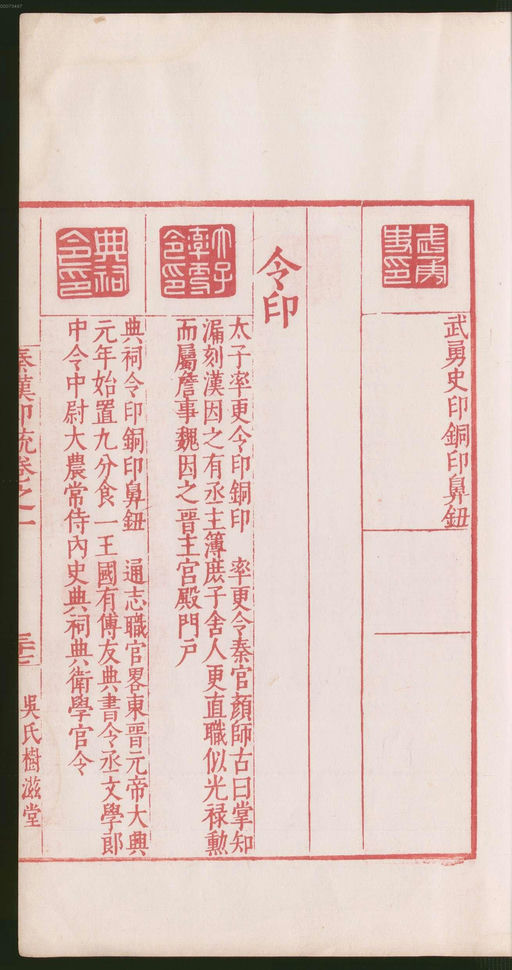 00073487
武勇史印
武勇史印銅印鼻鈕
令印
太子率更令印
太子率更令印銅印　率更令秦官顏師古曰掌知
漏刻漢因之有丞主簿庶子舍人更直職似光祿勳
而屬詹事魏因之晉主宮殿門戶
典祠令印
典祠令印銅印鼻鈕　通志職官畧東晉元帝大興
元年始置九分食一王國有傅友典書令丞文學郎
中令中尉大農常侍內史典祠典衛學官令
秦漢印統卷之一
吳氏樹滋堂